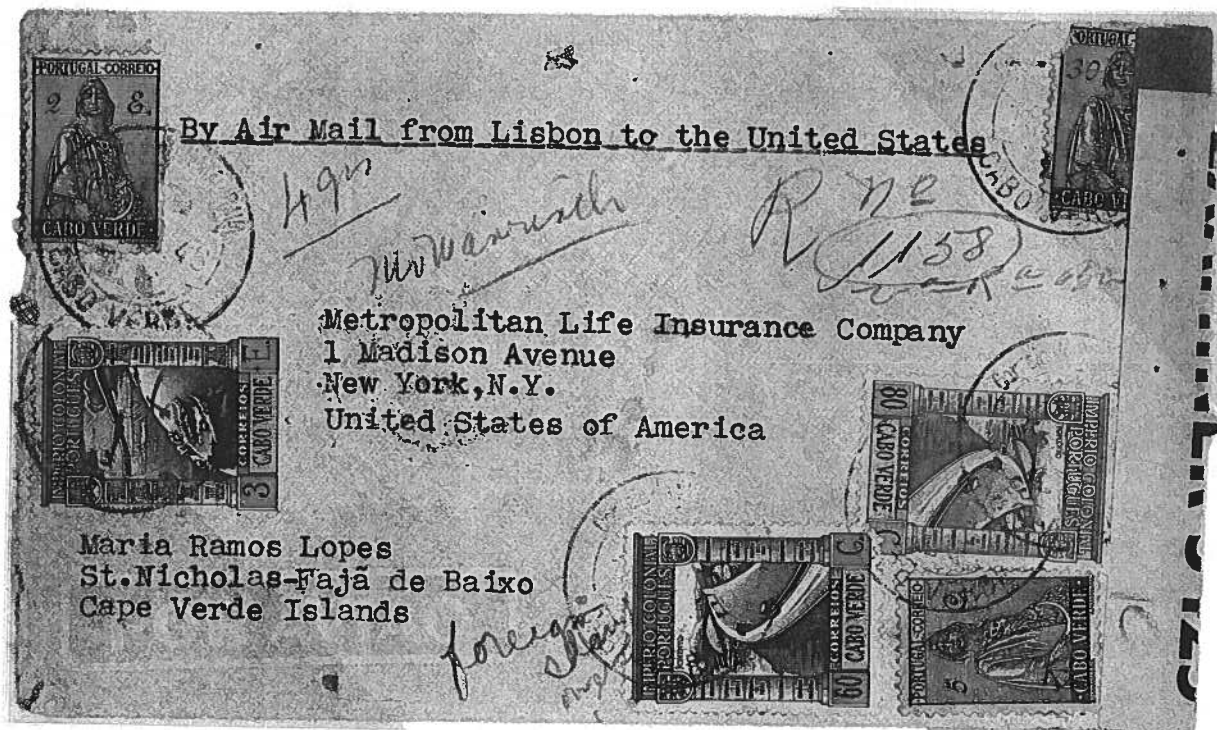 PORTUGAL-CORREIO
2 E.
CABO VERDE
PORTUGAL-
30
CABO VE
By Air Mail from Lisbon to the United States
CABO VERDE
CABO
4 grs
R no
1158
Metropolitan Life Insurance Company
1 Madison Avenue
New York,N.Y.
United States of America
IMPERIO COLONIAL
PORTUGUES
CORREIOS
3 CABO VERDE E.
80 CABO VERDE C.
CORREIOS
IMPERIO COLONIAL
PORTUGUES
Maria Ramos Lopes
St.Nicholas-Fajã de Baixo
Cape Verde Islands
foreign
IMPERIO COLONIAL
PORTUGUES
CORREIOS
60 CABO VERDE C.
PORTUGAL-CORREIO
5
CABO VERDE